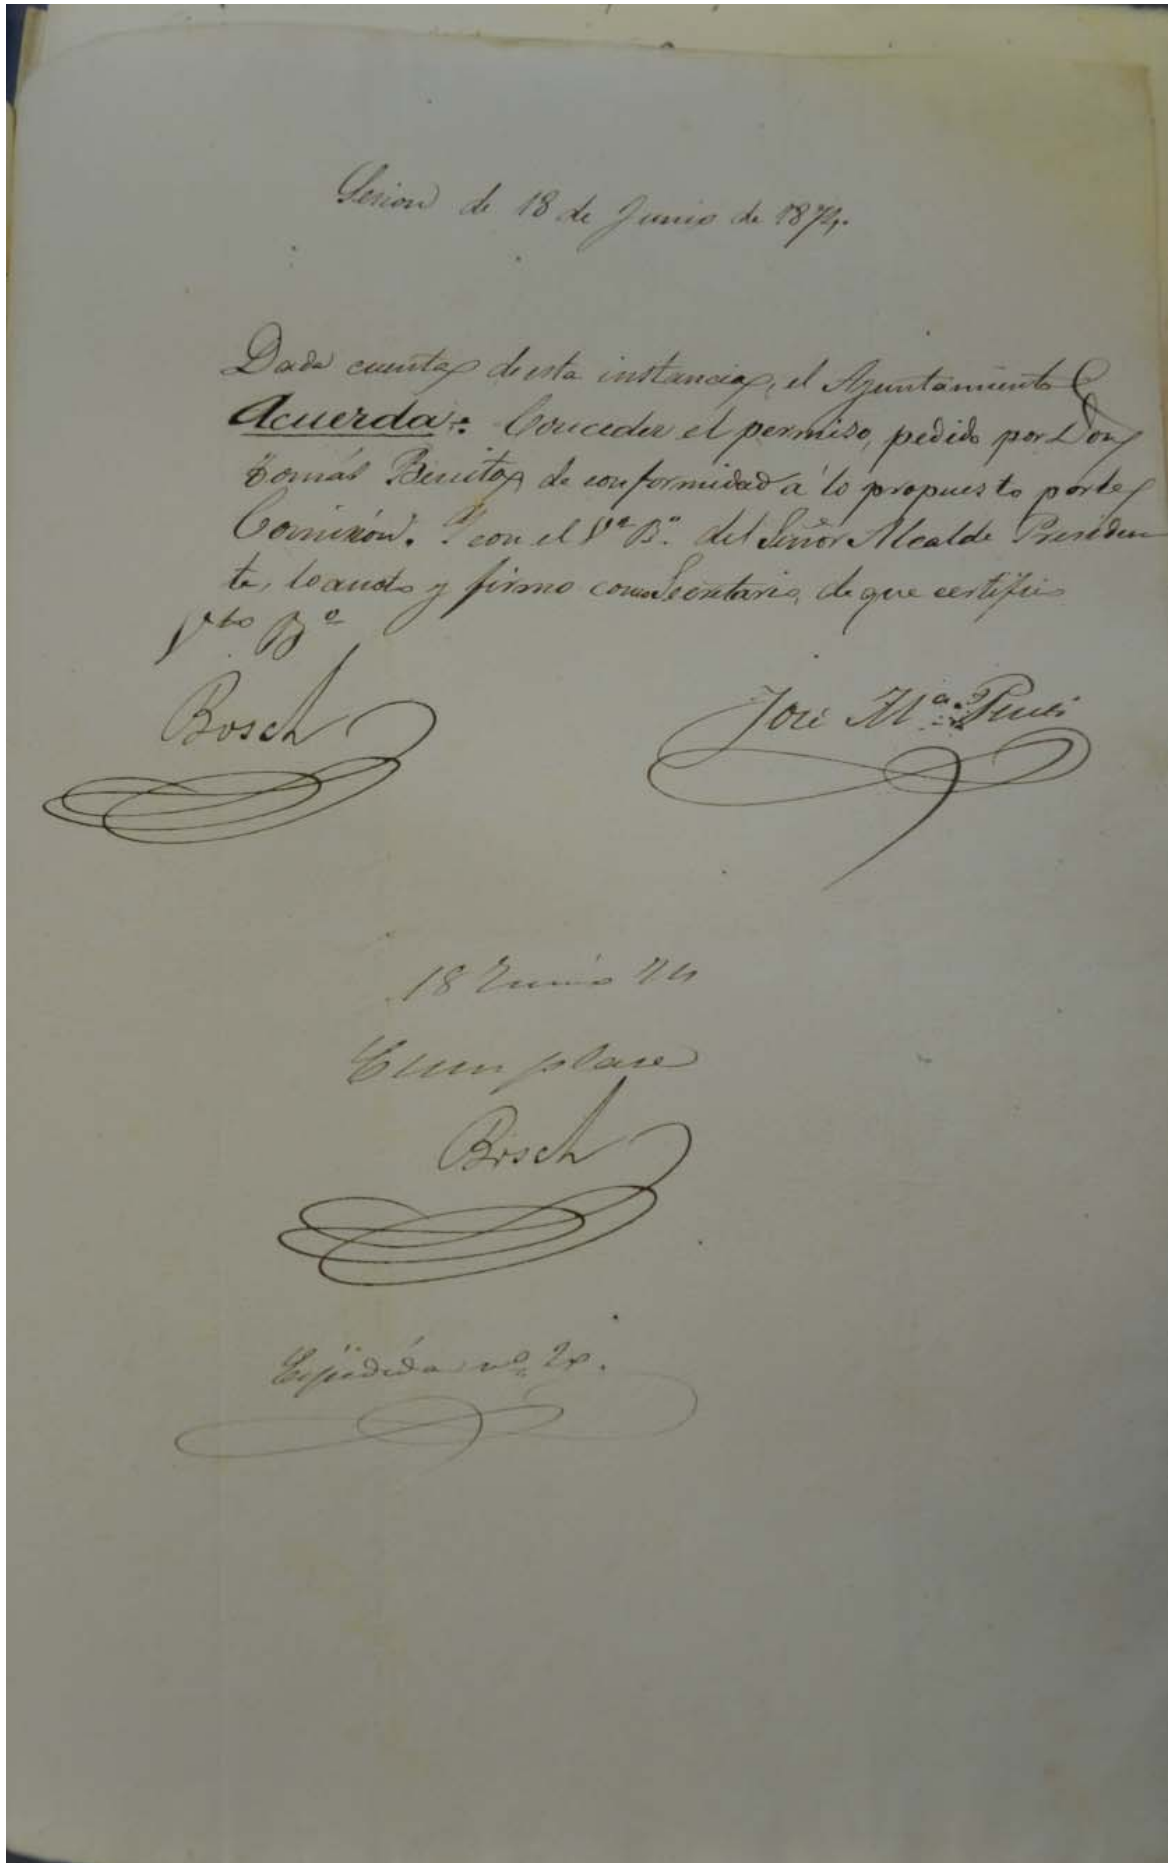 Sesion de 18 de Junio de 1874.
Dada cuenta de esta instancia, el Ayuntamiento
Acuerda: Conceder el permiso, pedido por Don
Tomás Benito, de conformidad á lo propuesto por la
Comisión. Y con el Vº Bº del Señor Alcalde Presiden
te, lo anoto y firmo como Secretario, de que certifico
Vto Bº
Bosch José Mª
18 Junio 74
Cumplase
Bosch
Espedida nº